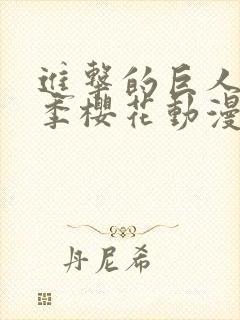 進擊的巨人
季櫻花動漫
丹尼希